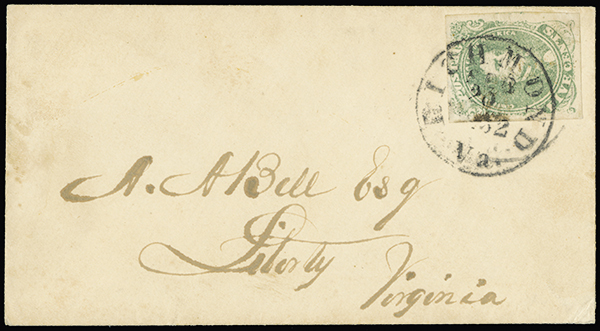 RICHMOND
1862
Va.
A. A Bell Esq
Liberty
Virginia